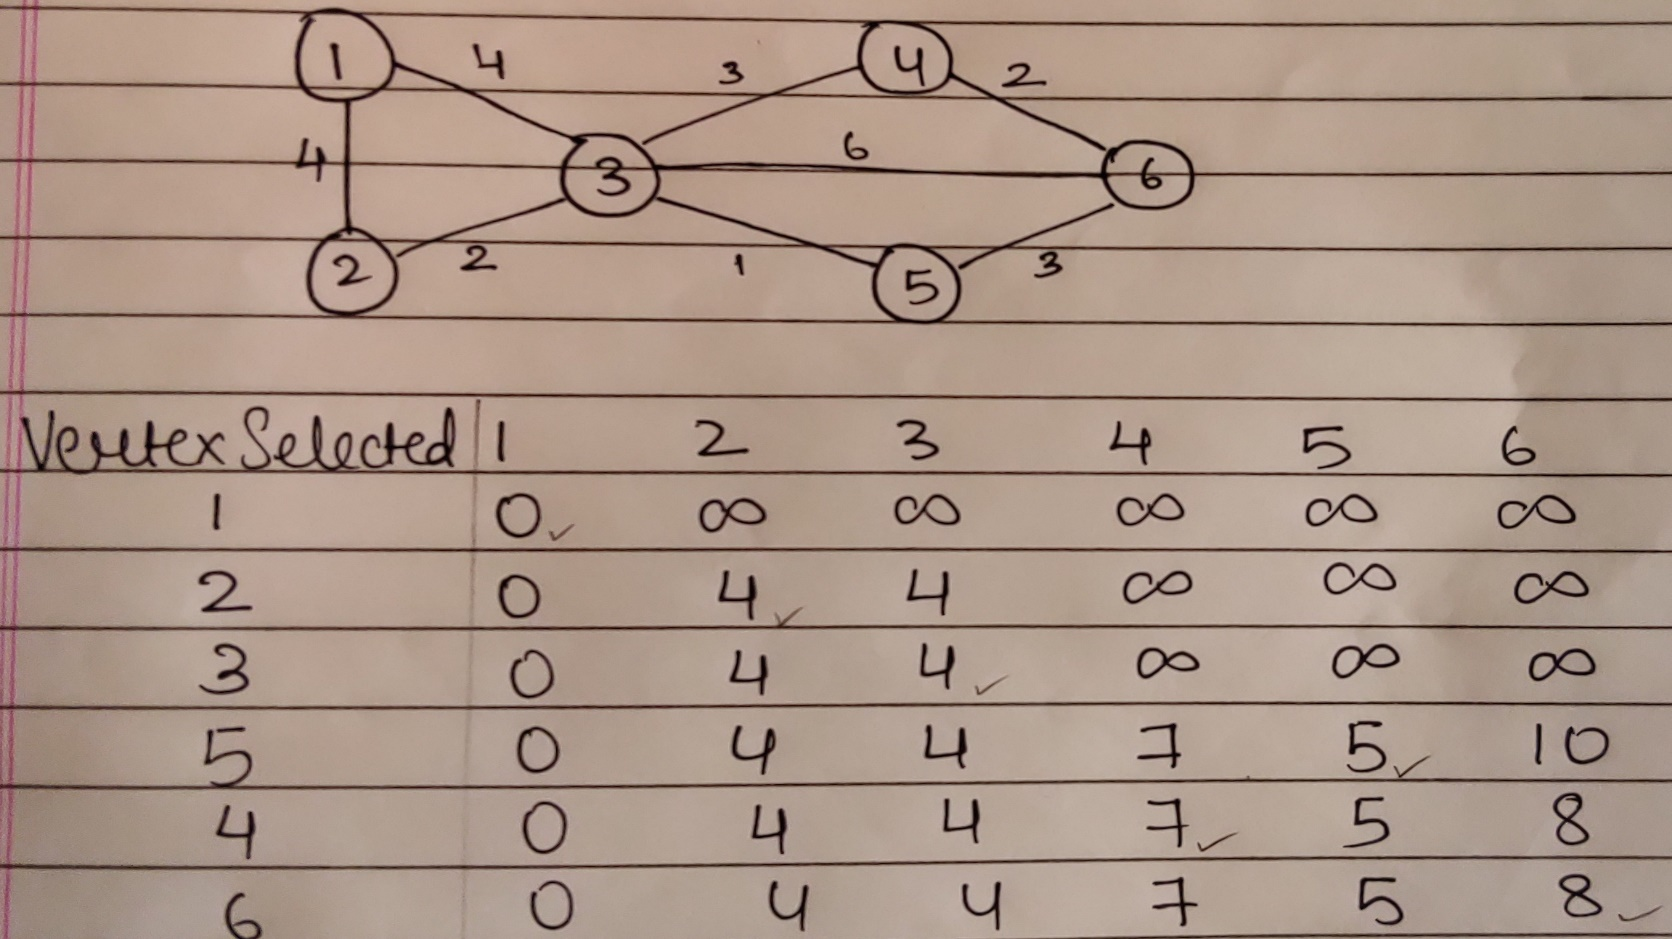 1 4 3 4 2
4 3 6 6
2 2 1 5 3
Vertex Selected 1 2 3 4 5 6
1 0✓ ∞ ∞ ∞ ∞ ∞
2 0 4✓ 4 ∞ ∞ ∞
3 0 4 4✓ ∞ ∞ ∞
5 0 4 4 7 5✓ 10
4 0 4 4 7✓ 5 8
6 0 4 4 7 5 8✓